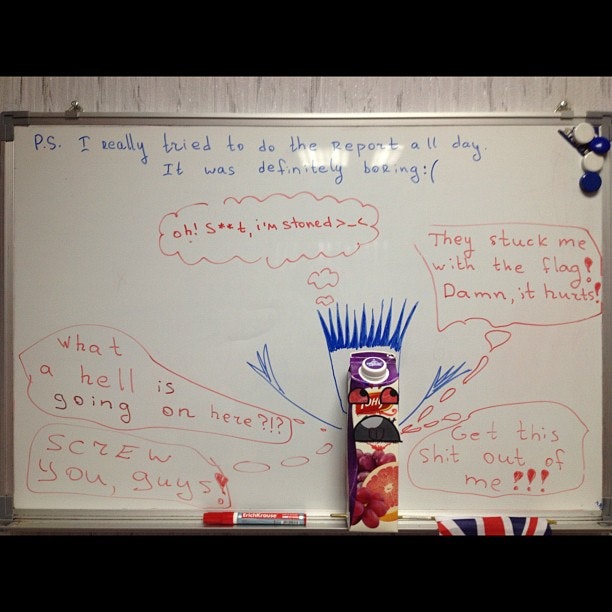 P.S. I really tried to do the report all day.
It was definitely boring:(
oh! S**t, i'm stoned >_<
They stuck me
with the flag!
Damn, it hurts!
What
a hell is
going on here?!?
SCREW
YOU, guys!
Get this
shit out of
me!!!
ErichKrause